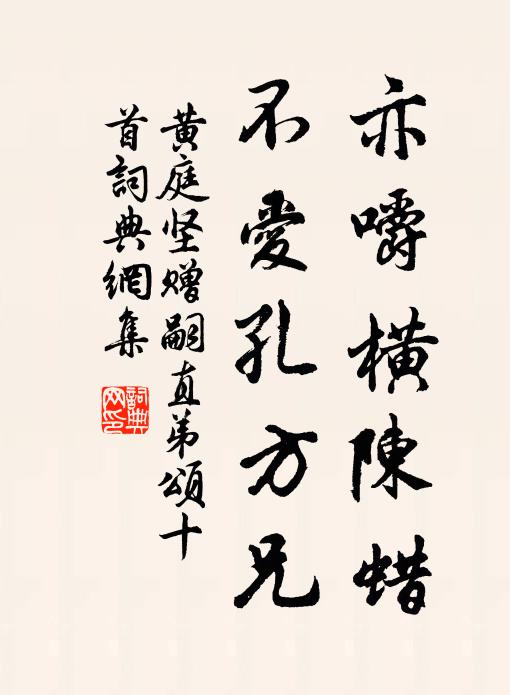 亦嚼橫陳蜡
不愛孔方兄
黄庭坚贈嗣直弟頌十
首詞典網集
詞典网印